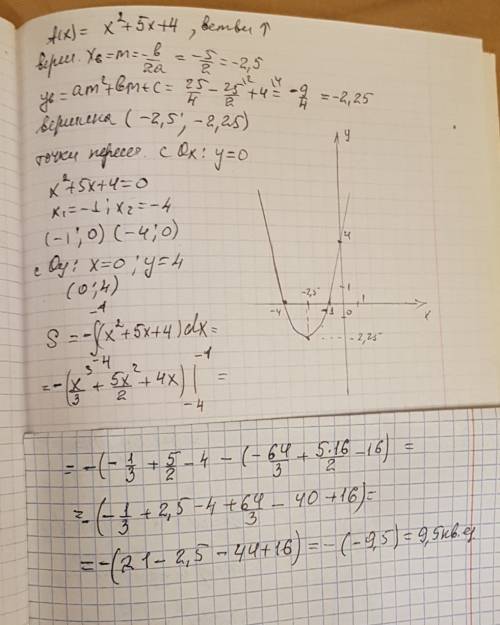 f(x) = x²+5x+4, ветви ↑
верш. x₀=m=-b/2a = -5/2 = -2,5
y₀=am²+bm+c = 25/4 - 25/2 + 4 = -9/4 = -2,25
вершина (-2,5; -2,25)
точки перес. с Ox: y=0
x²+5x+4=0
x₁=-1; x₂=-4
(-1;0) (-4;0)
с Oy: x=0; y=4
(0;4)
S = -∫₋₄⁻¹(x²+5x+4)dx=
=-(x³/3 + 5x²/2 + 4x)|₋₄⁻¹ =
y
4
1
-4
-2,5
-1
0
1
x
-2,25
= -(-1/3 + 5/2 - 4 - (-64/3 + 5·16/2 - 16) =
=-(-1/3 + 2,5 - 4 + 64/3 - 40 + 16)=
=-(21 - 2,5 - 44 + 16) = -(-9,5) = 9,5 кв.ед